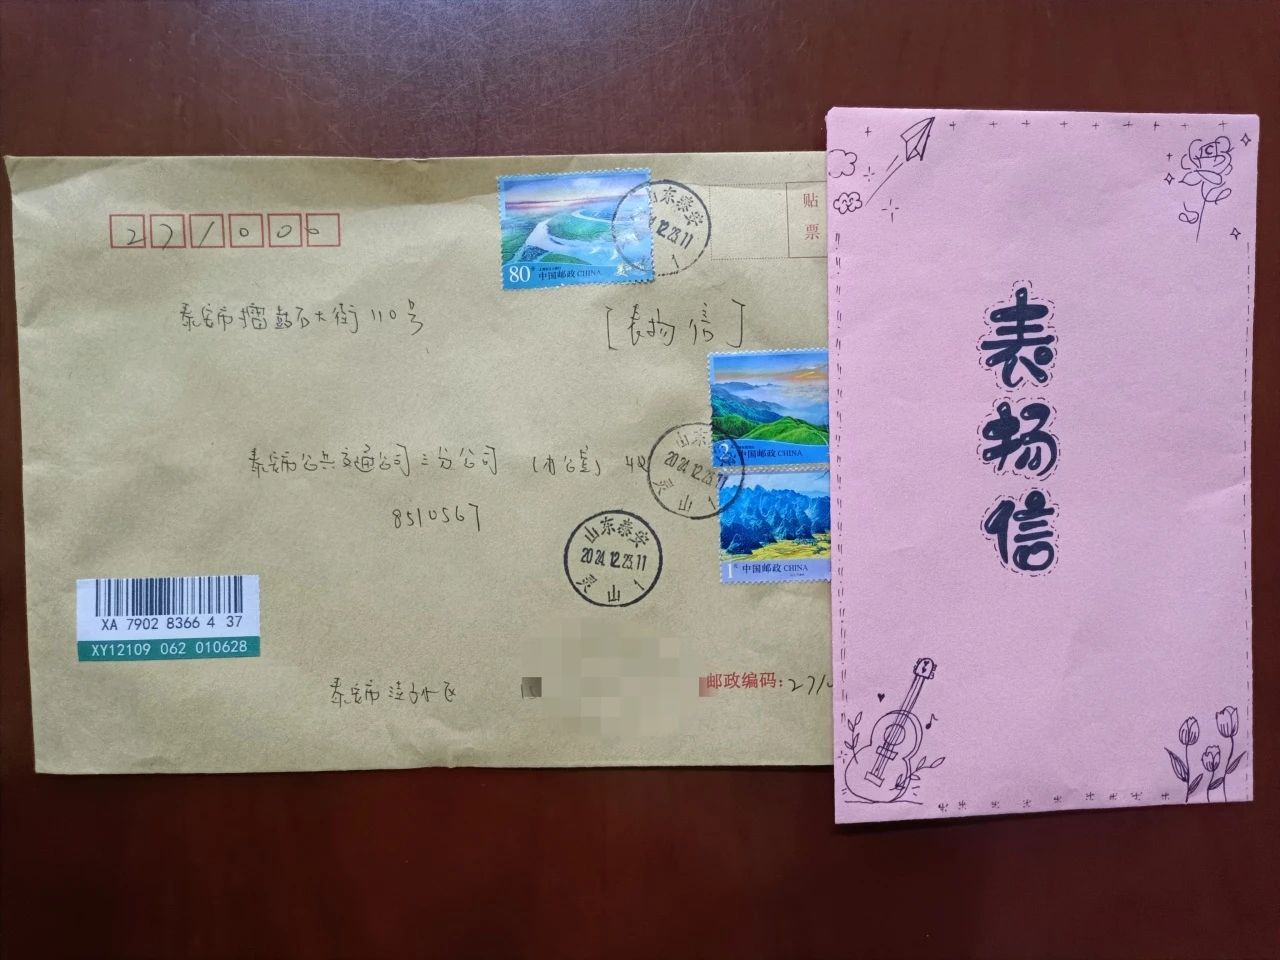 271000
泰安市擂鼓石大街110号
[表扬信]
泰安市公共交通公司三分公司(办公室)
8510567
80分 中国邮政 CHINA
山东泰安
2024.12.23.11
1
贴
票
2 中国邮政 CHINA
山东
2024.12.23.11
灵山 1
1元 中国邮政 CHINA
山东泰安
2024.12.23.11
灵山 1
XA 7902 8366 4 37
XY12109 062 010628
泰安市
邮政编码:271
表
扬
信